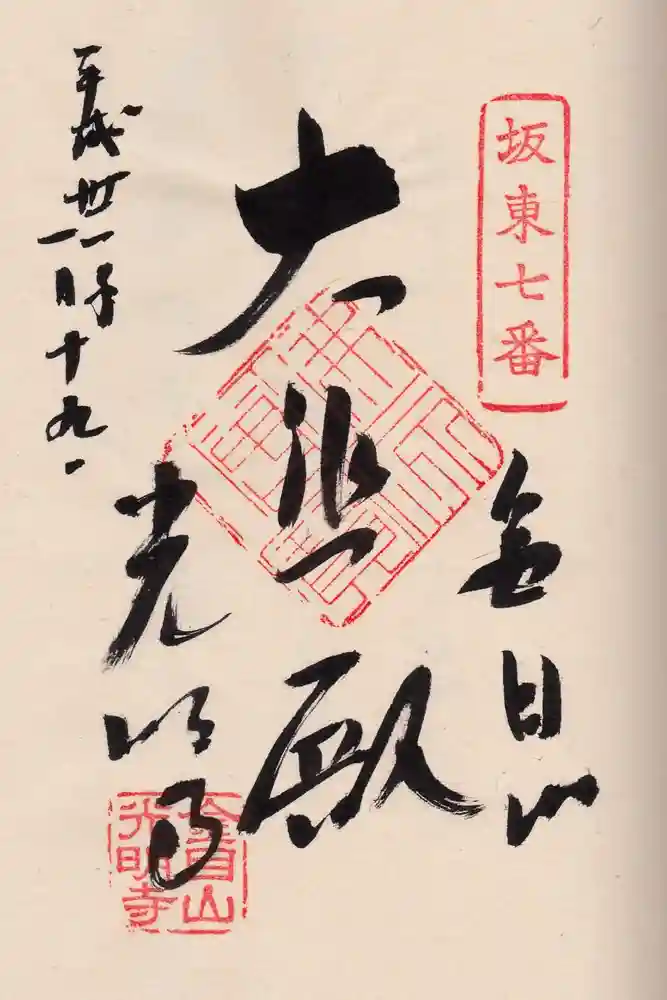 坂東七番
金目山
大悲殿
平成卅一年一月十九日
光明寺
金目山
光明寺